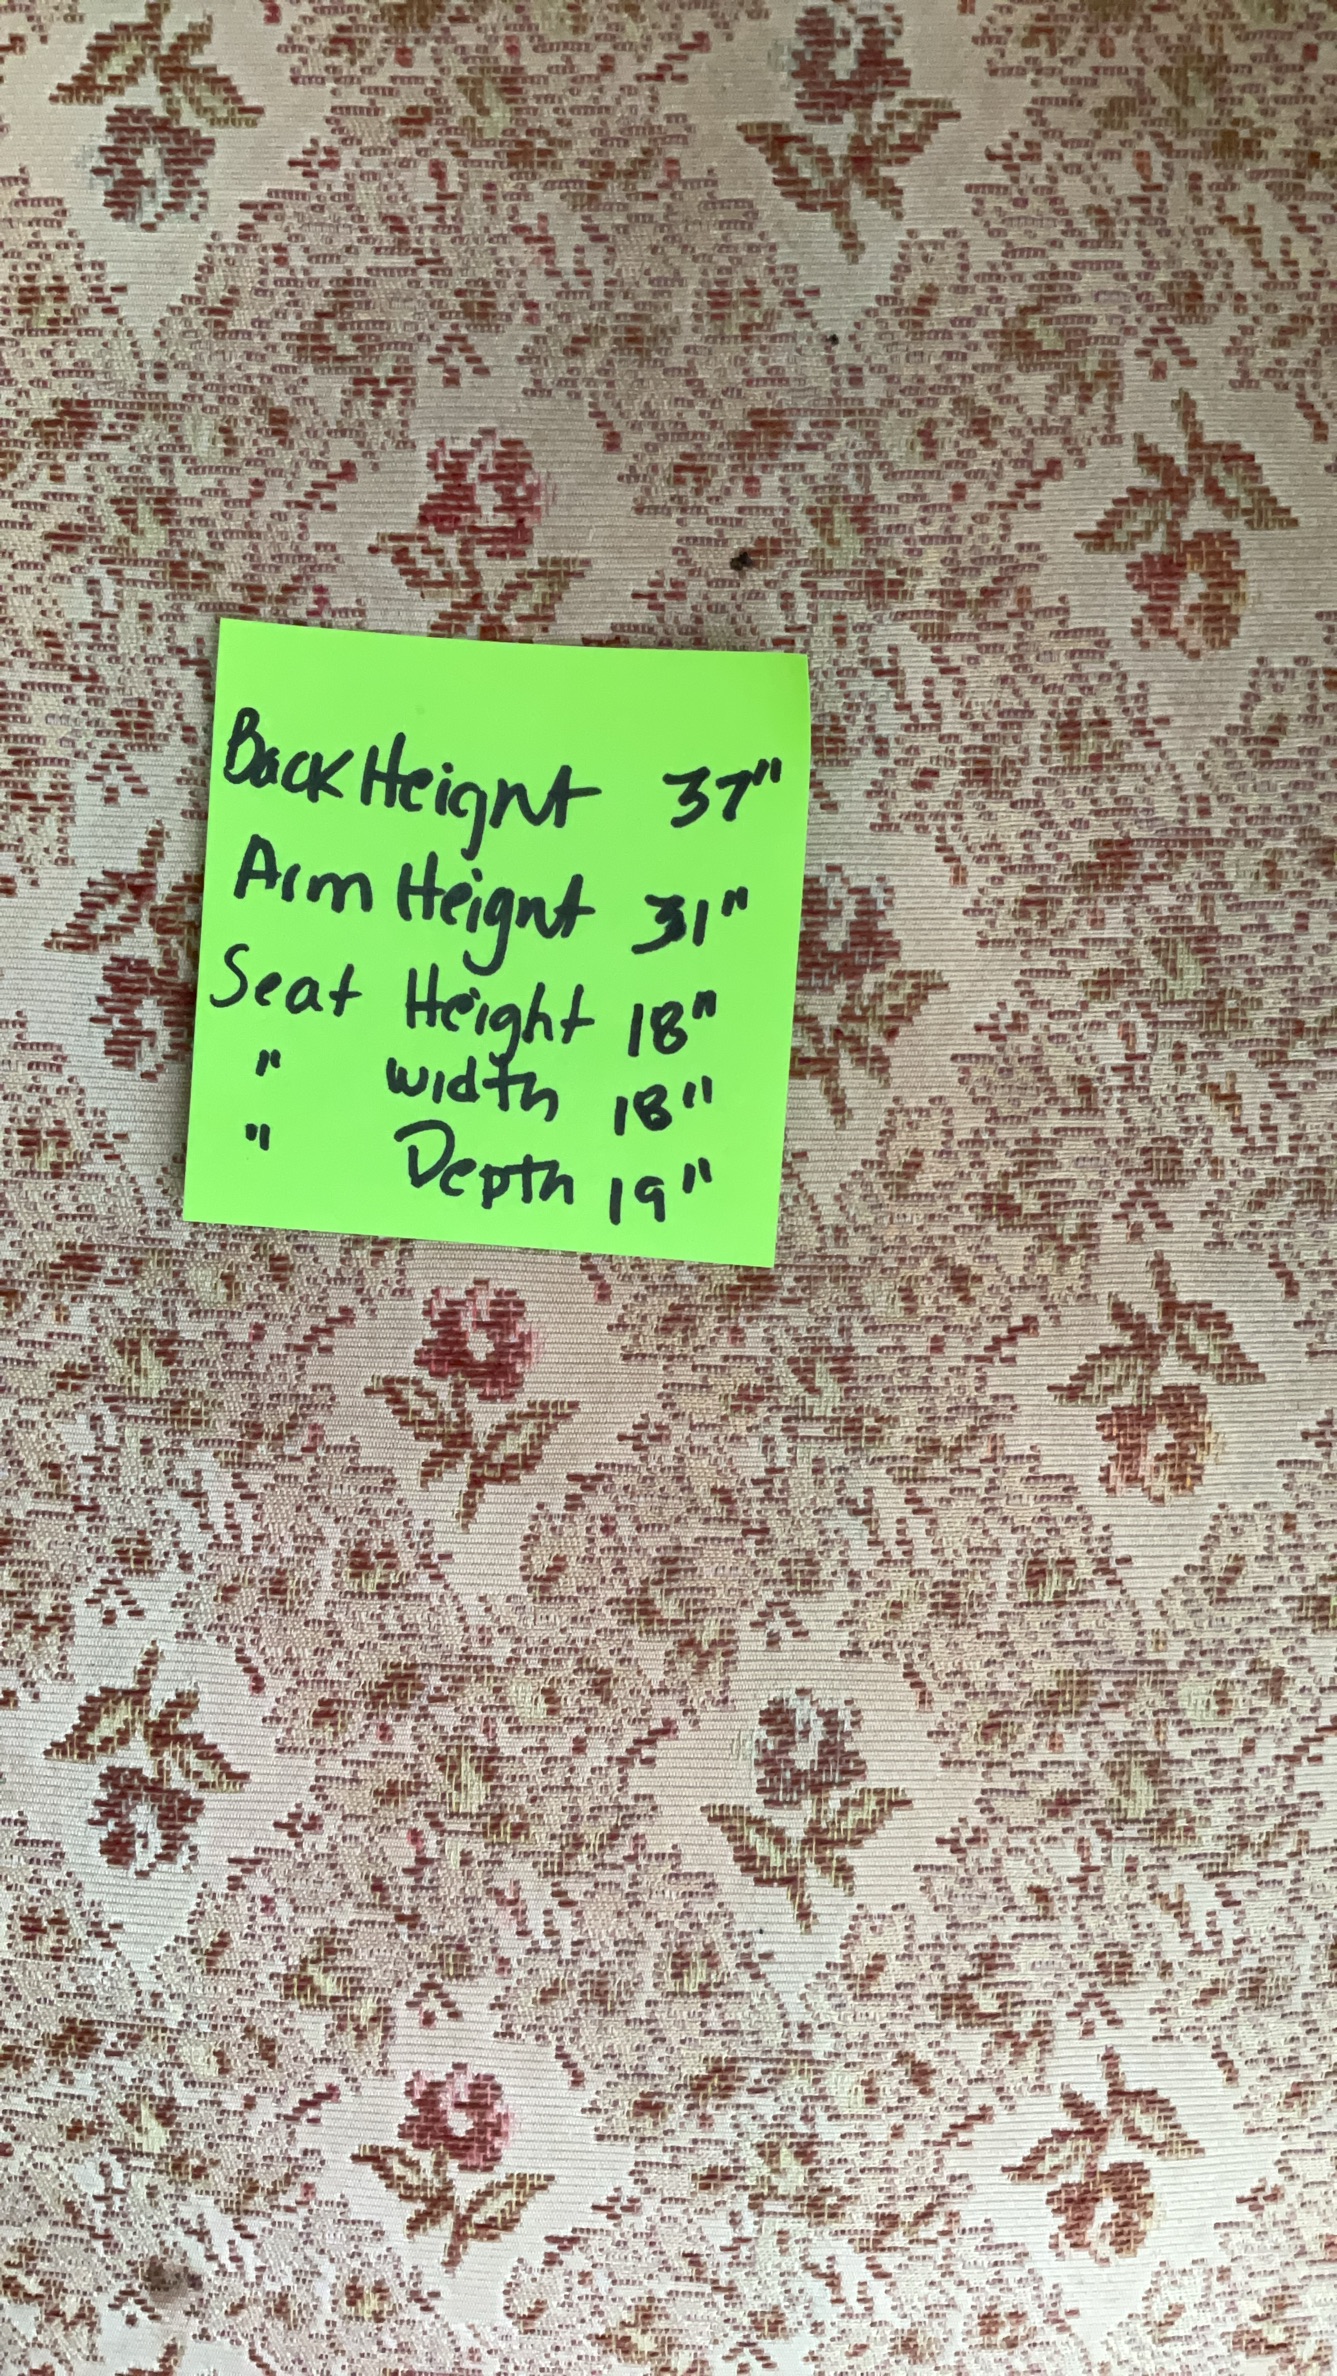 Back Height 37"
Arm Height 31"
Seat Height 18"
" width 18"
" Depth 19"